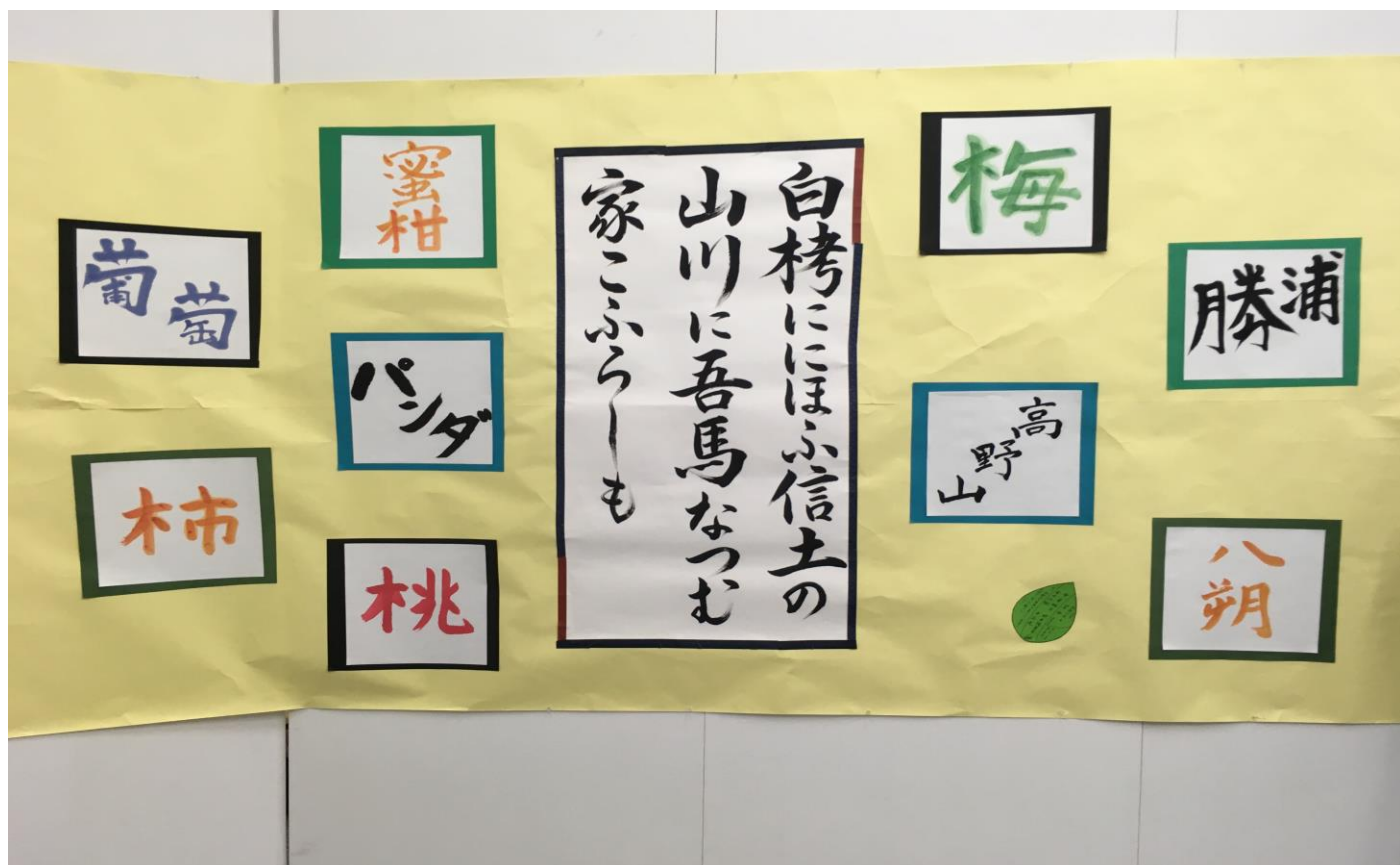 葡萄
柿
蜜柑
パンダ
桃
白栲ににほふ信土の
山川に吾馬なづむ
家こふらしも
梅
高野山
勝浦
八朔